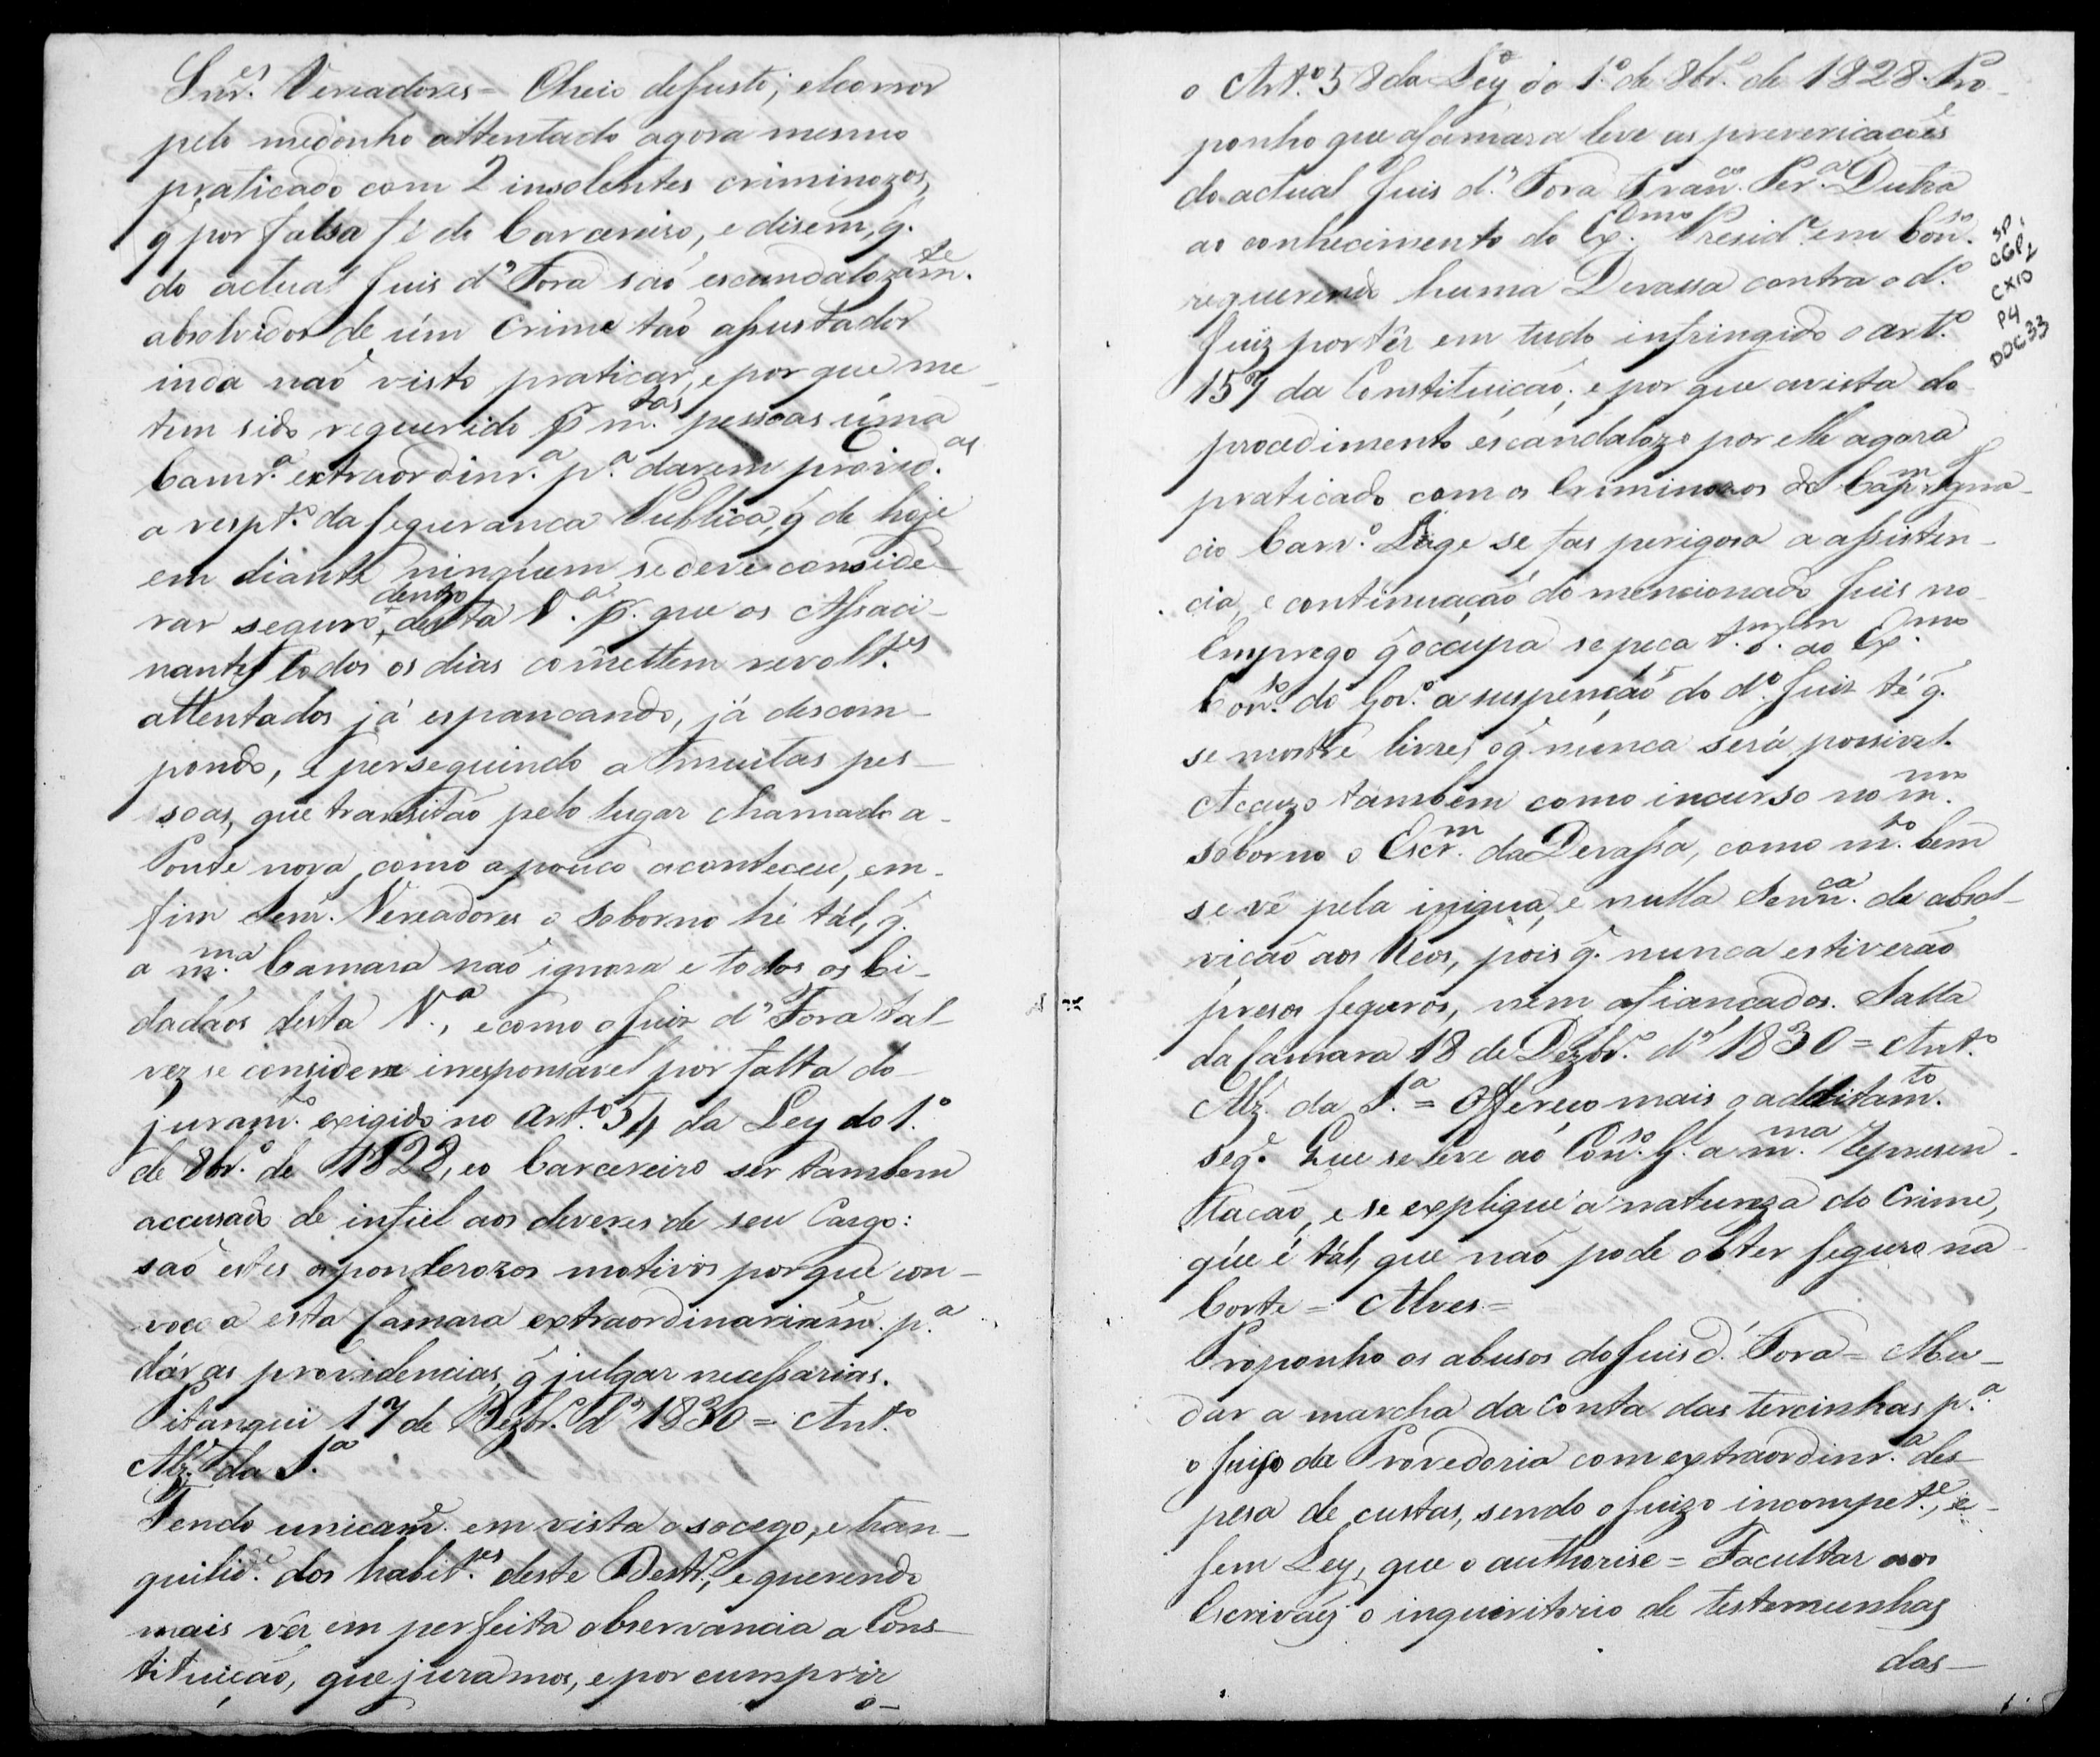 Snr.es Vereadores = Cheio de susto, e horror
pelo medonho attentado agora mesmo
praticado com 2 insolentes criminozos,
q̃ por falsa fé do Carcereiro, e disem, q̃.
do actual Juis d'Fora saõ escandalozam̃.te
absolvidos de úm Crime taõ assustador
inda naõ visto praticar, e por que me
tem sido requerido p̃ m.tas pessoas úma
Camr.ª extraordinr.ª p.ª darem provid.as
a respt.º da segurança Publica, q̃ de hoje
em diante ninguem se deve conside-
rar seguro, dentro desta V.ª p̃. que os Assaci-
nantes todos os dias comettem revolt.es
attentados já espancando, já descom-
pondo, e perseguindo a muitas pes-
soas, que transitão pelo lugar chamado a
Ponte nova, como a pouco aconteceu, em-
fim Vereadores o soborno hé tál, q̃.
a m.ma Camara naõ ignora e todos os Ci-
dadaõs desta V.ª, e como o Juis d'Fora tal-
vez se considere irresponsavel por falta do
juram.to exigido no Art.º 54 da Ley do 1.º
de 8br.º de 1828, e o Carcereiro ser tambem
accusado de infiel aos deveres de seu Cargo:
saõ estes os ponderozos motivos porque con-
voco a esta Camara extraordinariam̃.e p.ª
dár as providencias, q̃ julgar necessarias.
Pitangui 17 de Dezbr.º d'1830 = Ant.º
Alz̃ da S.ª
Tendo unicam̃.e em vista o socego, e tran-
quilid.e dos habit.es deste Destr.º, e querendo
mais vêr em perfeita observancia a Cons-
tituição, que juramos, e por cumprir
o-
o Art.º 58 da Ley do 1.º de 8br.º de 1828. Pro-
ponho que a Camara leve as prevericacões
do actual Juis d'Fora Fran.co Per.ª Dutra
ao conhecimento do Ex.mo Presid.e em Con.so
requerendo huma Devassa contra o d.º
Juiz por têr em tudo infringido o art.º
157 da Constituicaõ; e por que avista do
procedimento éscandalozo por elle agora
praticado com os Criminozos do Cap.m Igna-
cio Carv.º Lage se fas perigosa a assisten-
cia, e continuaçaõ do mencionado Juis no
Emprego q̃ occupa se peca ao Ex.mo
Con.so do Gov.º a suspençaõ do d.º Juiz té q̃.
se mostre livre, o q̃ nunca será possivel.
Accuzo tambem como incurso no m.mo
soborno o Escr.m da Devassa, como m.to bem
se vê pela iniqua, e nulla Senn.ca de absol-
vicaõ aos Reos, pois q̃. nunca estiveraõ
presos seguros, nem afiançados. Salla
da Camara 18 de Dezbr.º d'1830 = Ant.º
Alz̃ da S.ª = Offereço mais o additam.to
seg.e Que se leve aó Con.so G.l a m.ma represen-
tacaõ, e se explique a natureza do Crime,
que é tál, que não pode obter seguro na
Corte = Alves =
Proponho os abusos do Juis d'Fora = Mu-
dar a marcha da Conta das tercinhas p.ª
o Juiso da Provedoria com extraordinr.ª des-
pesa de custas, sendo o Juizo incompet.e, e
sem Ley, que o authorise = Facultar aos
Escrivaẽs o inquiritorio de testemunhas
das-
SP.
CGP1
CX10
P4
DOC33